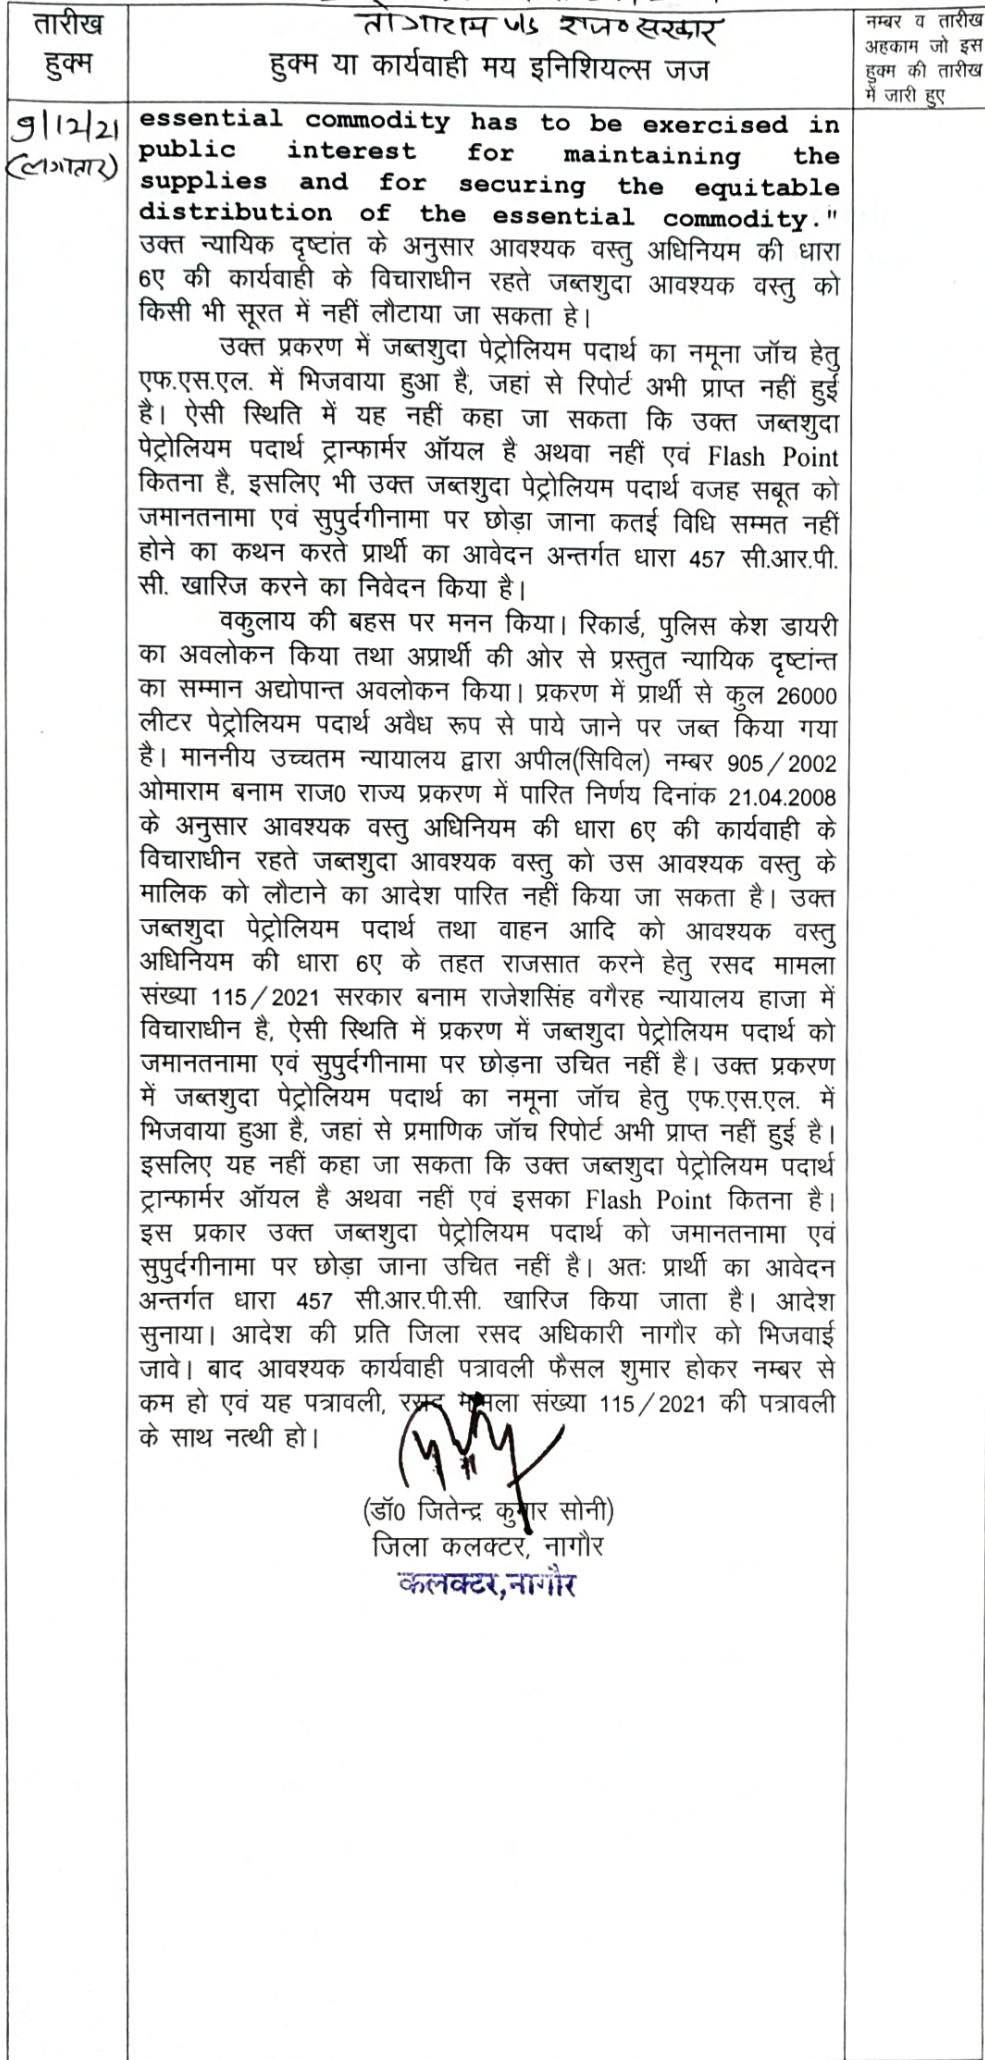 तारीख
हुक्म
तोगाराम v/s राज० सरकार
हुक्म या कार्यवाही मय इनिशियल्स जज
नम्बर व तारीख
अहकाम जो इस
हुक्म की तारीख
में जारी हुए
9/12/21
(लगातार)
essential commodity has to be exercised in
public interest for maintaining the
supplies and for securing the equitable
distribution of the essential commodity."
उक्त न्यायिक दृष्टांत के अनुसार आवश्यक वस्तु अधिनियम की धारा
6ए की कार्यवाही के विचाराधीन रहते जब्तशुदा आवश्यक वस्तु को
किसी भी सूरत में नहीं लौटाया जा सकता हे।
उक्त प्रकरण में जब्तशुदा पेट्रोलियम पदार्थ का नमूना जॉच हेतु
एफ.एस.एल. में भिजवाया हुआ है, जहां से रिपोर्ट अभी प्राप्त नहीं हुई
है। ऐसी स्थिति में यह नहीं कहा जा सकता कि उक्त जब्तशुदा
पेट्रोलियम पदार्थ ट्रान्फार्मर ऑयल है अथवा नहीं एवं Flash Point
कितना है, इसलिए भी उक्त जब्तशुदा पेट्रोलियम पदार्थ वजह सबूत को
जमानतनामा एवं सुपुर्दगीनामा पर छोड़ा जाना कतई विधि सम्मत नहीं
होने का कथन करते प्रार्थी का आवेदन अन्तर्गत धारा 457 सी.आर.पी.
सी. खारिज करने का निवेदन किया है।
वकुलाय की बहस पर मनन किया। रिकार्ड, पुलिस केश डायरी
का अवलोकन किया तथा अप्रार्थी की ओर से प्रस्तुत न्यायिक दृष्टांन्त
का सम्मान अद्योपान्त अवलोकन किया। प्रकरण में प्रार्थी से कुल 26000
लीटर पेट्रोलियम पदार्थ अवैध रूप से पाये जाने पर जब्त किया गया
है। माननीय उच्चतम न्यायालय द्वारा अपील(सिविल) नम्बर 905/2002
ओमाराम बनाम राज0 राज्य प्रकरण में पारित निर्णय दिनांक 21.04.2008
के अनुसार आवश्यक वस्तु अधिनियम की धारा 6ए की कार्यवाही के
विचाराधीन रहते जब्तशुदा आवश्यक वस्तु को उस आवश्यक वस्तु के
मालिक को लौटाने का आदेश पारित नहीं किया जा सकता है। उक्त
जब्तशुदा पेट्रोलियम पदार्थ तथा वाहन आदि को आवश्यक वस्तु
अधिनियम की धारा 6ए के तहत राजसात करने हेतु रसद मामला
संख्या 115/2021 सरकार बनाम राजेशसिंह वगैरह न्यायालय हाजा में
विचाराधीन है, ऐसी स्थिति में प्रकरण में जब्तशुदा पेट्रोलियम पदार्थ को
जमानतनामा एवं सुपुर्दगीनामा पर छोड़ना उचित नहीं है। उक्त प्रकरण
में जब्तशुदा पेट्रोलियम पदार्थ का नमूना जॉच हेतु एफ.एस.एल. में
भिजवाया हुआ है, जहां से प्रमाणिक जॉच रिपोर्ट अभी प्राप्त नहीं हुई है।
इसलिए यह नहीं कहा जा सकता कि उक्त जब्तशुदा पेट्रोलियम पदार्थ
ट्रान्फार्मर ऑयल है अथवा नहीं एवं इसका Flash Point कितना है।
इस प्रकार उक्त जब्तशुदा पेट्रोलियम पदार्थ को जमानतनामा एवं
सुपुर्दगीनामा पर छोड़ा जाना उचित नहीं है। अतः प्रार्थी का आवेदन
अन्तर्गत धारा 457 सी.आर.पी.सी. खारिज किया जाता है। आदेश
सुनाया। आदेश की प्रति जिला रसद अधिकारी नागौर को भिजवाई
जावे। बाद आवश्यक कार्यवाही पत्रावली फैसल शुमार होकर नम्बर से
कम हो एवं यह पत्रावली, रसद मामला संख्या 115/2021 की पत्रावली
के साथ नत्थी हो।
(डॉ0 जितेन्द्र कुमार सोनी)
जिला कलक्टर, नागौर
कलक्टर,नागौर